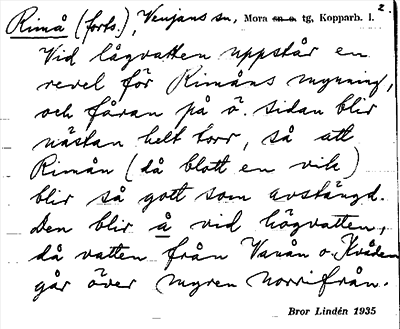 Rimå (forts.), Venjans sn, Mora sn o. tg, Kopparb. l. 2.
Vid lågvatten uppstår en
revel för Rimåns mynning,
och fåran på ö. sidan blir
nästan helt torr, så att
Rimån (då blott en vik)
blir så gott som avstängd.
Den blir å vid högvatten,
då vatten från Vanån o. Kvåden
går över myren norrifrån.
Bror Lindén 1935